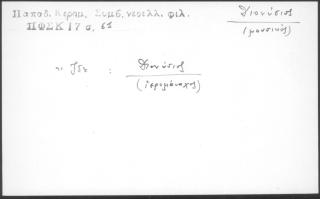 Παπαδ. Κεραμ. Συμβ. νεοελλ. φιλ.
ΠΦΣΚ 17 σ. 61
Διονύσιος
(μουσικός)
Ἰδε : Διονύσιος
(ἱερομόναχος)